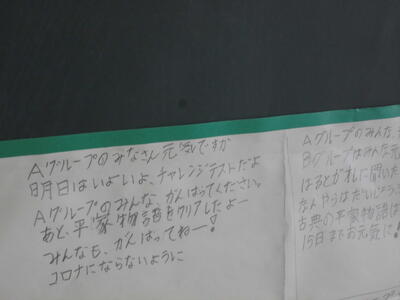 Aグループのみなさん元気ですか
明日はいよいよ、チャレンジテストだよ
Aグループのみんな、がんばってください。
あと、平家物語をクリアしたよー
みんなも、がんばってねー!
コロナにならないように
Aグループのみんな、
Bグループはみんな元
はるとがれに聞いた
なんやらはだいじょう
古典の平家物語は
15日までお元気に!